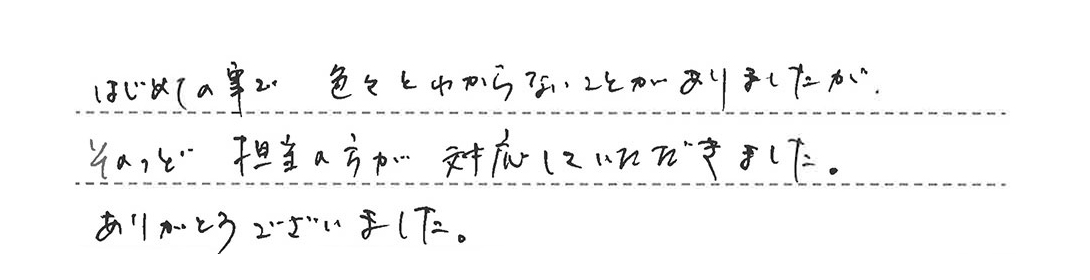 はじめての事で 色々とわからないことがありましたが、
そのつど 担当の方が 対応していただきました。
ありがとうございました。